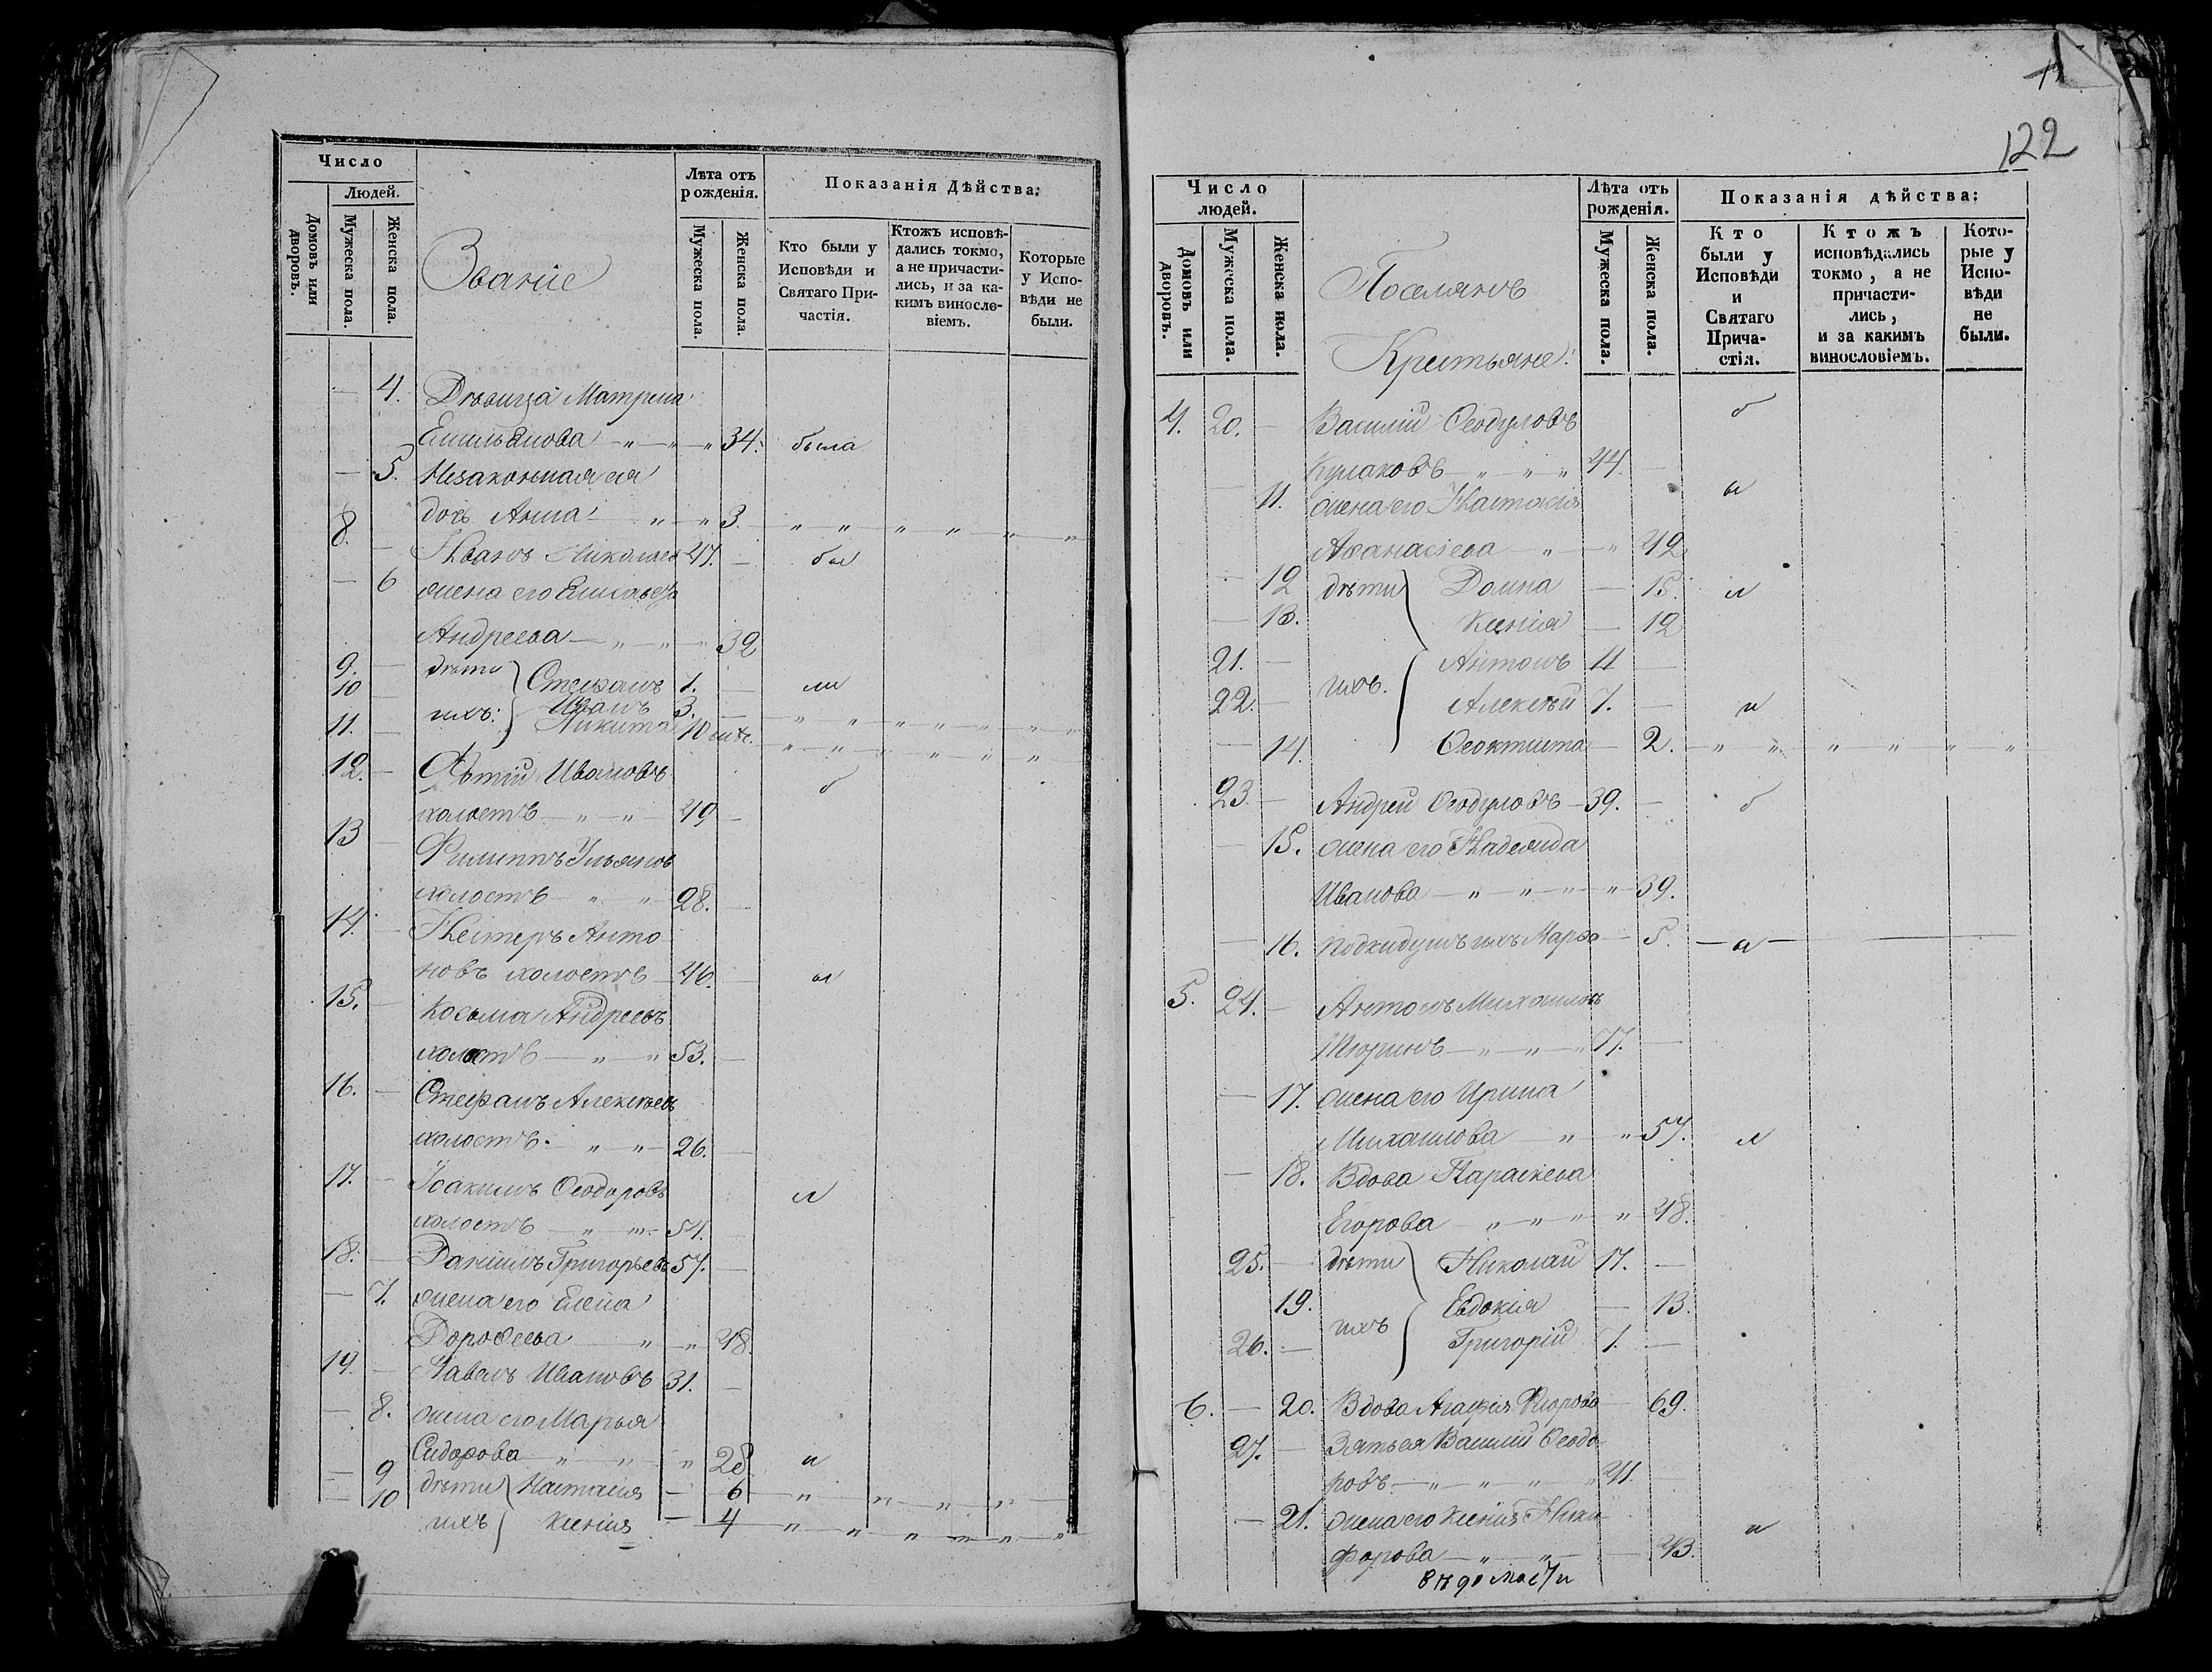 Число
Людей.
Домовъ или дворовъ.
Мужеска пола.
Женска пола.
Званіе
Лѣта отъ рожденія.
Мужеска пола.
Женска пола.
Показанія Дѣйства:
Кто были у Исповѣди и Святаго Причастія.
Ктожъ исповѣдались токмо, а не причастились, и за какимъ винословіемъ.
Которые у Исповѣди не были.
— 4. Дѣвица Матрена
Емильянова — „ — „ — „ 34. была
— 5. Незаконная ея
дочь Анна — „ — „ 3. „ „ „ „ „ „
8. — Иванъ Николаев 47. — был
— 6 жена его Елисавета
Андреева — „ — „ — „ 39
9. — дѣти Стефанъ 1. —
10 — Иванъ 3. — „ „ „ „ „ „ „
11. — ихъ: Никита 10 „ „ „ „ „ „
12. — Ивановъ б
холостъ — „ — „ — 49 —
13 — Филиппъ Ульянов
холостъ — „ — „ — 28. —
14. — Анто
новъ холостъ — 46. — ы
15. — Косьма Андреевъ
холостъ — „ — „ 53. —
16. — Стефанъ Алексѣевъ
холостъ — „ — „ — 26. —
17. — Іоакимъ Ѳеодоровъ л
холостъ — „ — „ — 54. —
18. — Даніилъ Григорьевъ 57. —
— 7. жена его Елена
Дороѳеева — „ — „ 48.
19. — Павелъ Ивановъ 31. —
— 8. жена его Марья
Сидорова — „ — „ — „ 28. и
— 9 дѣти Настасия — 6 — „ — „ — „ — „ —
— 10 ихъ Ксенія — 4 — „ — „ — „ — „ — „ — „
122
Число людей.
Домовъ или дворовъ.
Мужеска пола.
Женска пола.
Поселянъ
Крестьяне:
Лѣта отъ рожденія.
Мужеска пола.
Женска пола.
Показанія дѣйства:
Кто были у Исповѣди и Святаго Причастія.
Ктожъ исповѣдались токмо, а не причастились, и за какимъ винословіемъ.
Которые у Исповѣди не были.
4. 20. — Василій Ѳеодуловъ б
Кулаковъ — „ „ „ 44. —
— 11. жена его Настасія ы
Аѳанасіева — „ — „ 42
— 12 дѣти Домна — 15. л
— 13. Ксенія — 12
21. — Антонъ 11 —
22. — ихъ. Алексѣй 7. — и
— 14. Ѳеоктиста — 2. — „ „ „ „ „ „
23. — Андрей Ѳеодуловъ — 39. — б
— 15. жена его Надежда
Иванова — „ — „ — „ — „ 39.
— 16. подкидушъ ихъ Марѳа — 5. — а —
5. 24. — Антонъ Михаиловъ
Тюринъ — „ — „ — „ 77. —
— 17. жена его Ирина
Михаилова — „ — „ 57. л
— 18. Вдова Параскева
Егорова — „ — „ — „ „ 48.
25. — дѣти Николай 17. —
19. ихъ Евдокія — 13.
26. — Григорій 7. —
6. — 20. Вдова Агафія Флорова — 69.
27. — Зять ея Василій Ѳеодо-
ровъ — „ — „ — „ — „ 41. —
— 21. жена его Ксенія Ники- и
форова — „ — „ — 43.